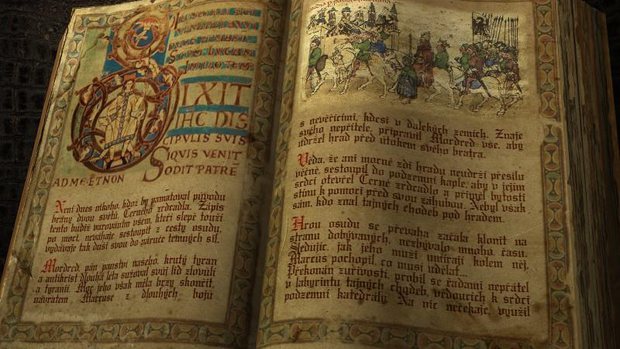 DIXIT
IHC DIS
CIPULIS SUIS
SIQUIS VENIT
ADMEETNON SODIT PATRE
Není dnes nikoho, kdož by pamatoval původu
brány dvou světů Černého zrcadla. Zápis
tento budiž varováním všem, kteří slepě touží
po moci, neváhaje sestoupit z cesty osudu,
vydávaje tak duši svou do záruče temných sil.
Mordred pán panství našeho, krutý tyran
a antikrist dlouhá léta sužoval svůj lid zlovůlí
a tyranií. Moc jeho však měla brzy skončit,
návratem Marcuse z dlouhých bojů
s nevěřícími, kdesi v dalekých zemích. Znaje
svého nepřítele, připravil Mordred vše, aby
udržel hrad před útokem svého bratra.
Věda, že ani mocné zdi hradu neudrží přesilu
věčně, sestoupil do podzemní kaple, aby v jejím
srdci otevřel Černé zrdcadlo a přivol bytosti
stínu k pomoci před svou záhubou. Nebyl však
sám, kdo znal tajných chodeb pod hradem.
Hrou osudu se převaha začala klonit na
stranu dobývaných, nezbývalo mnoho času.
Sledujíc, jak jeho muži umírají kolem něj,
Marcus pochopil, co musí udělat...
Překonán zuřivostí, probil se řadami nepřátel
v labyrintu tajných chodeb, vedoucích k srdci
podzemní katedrály. Na nic nečekaje, využil